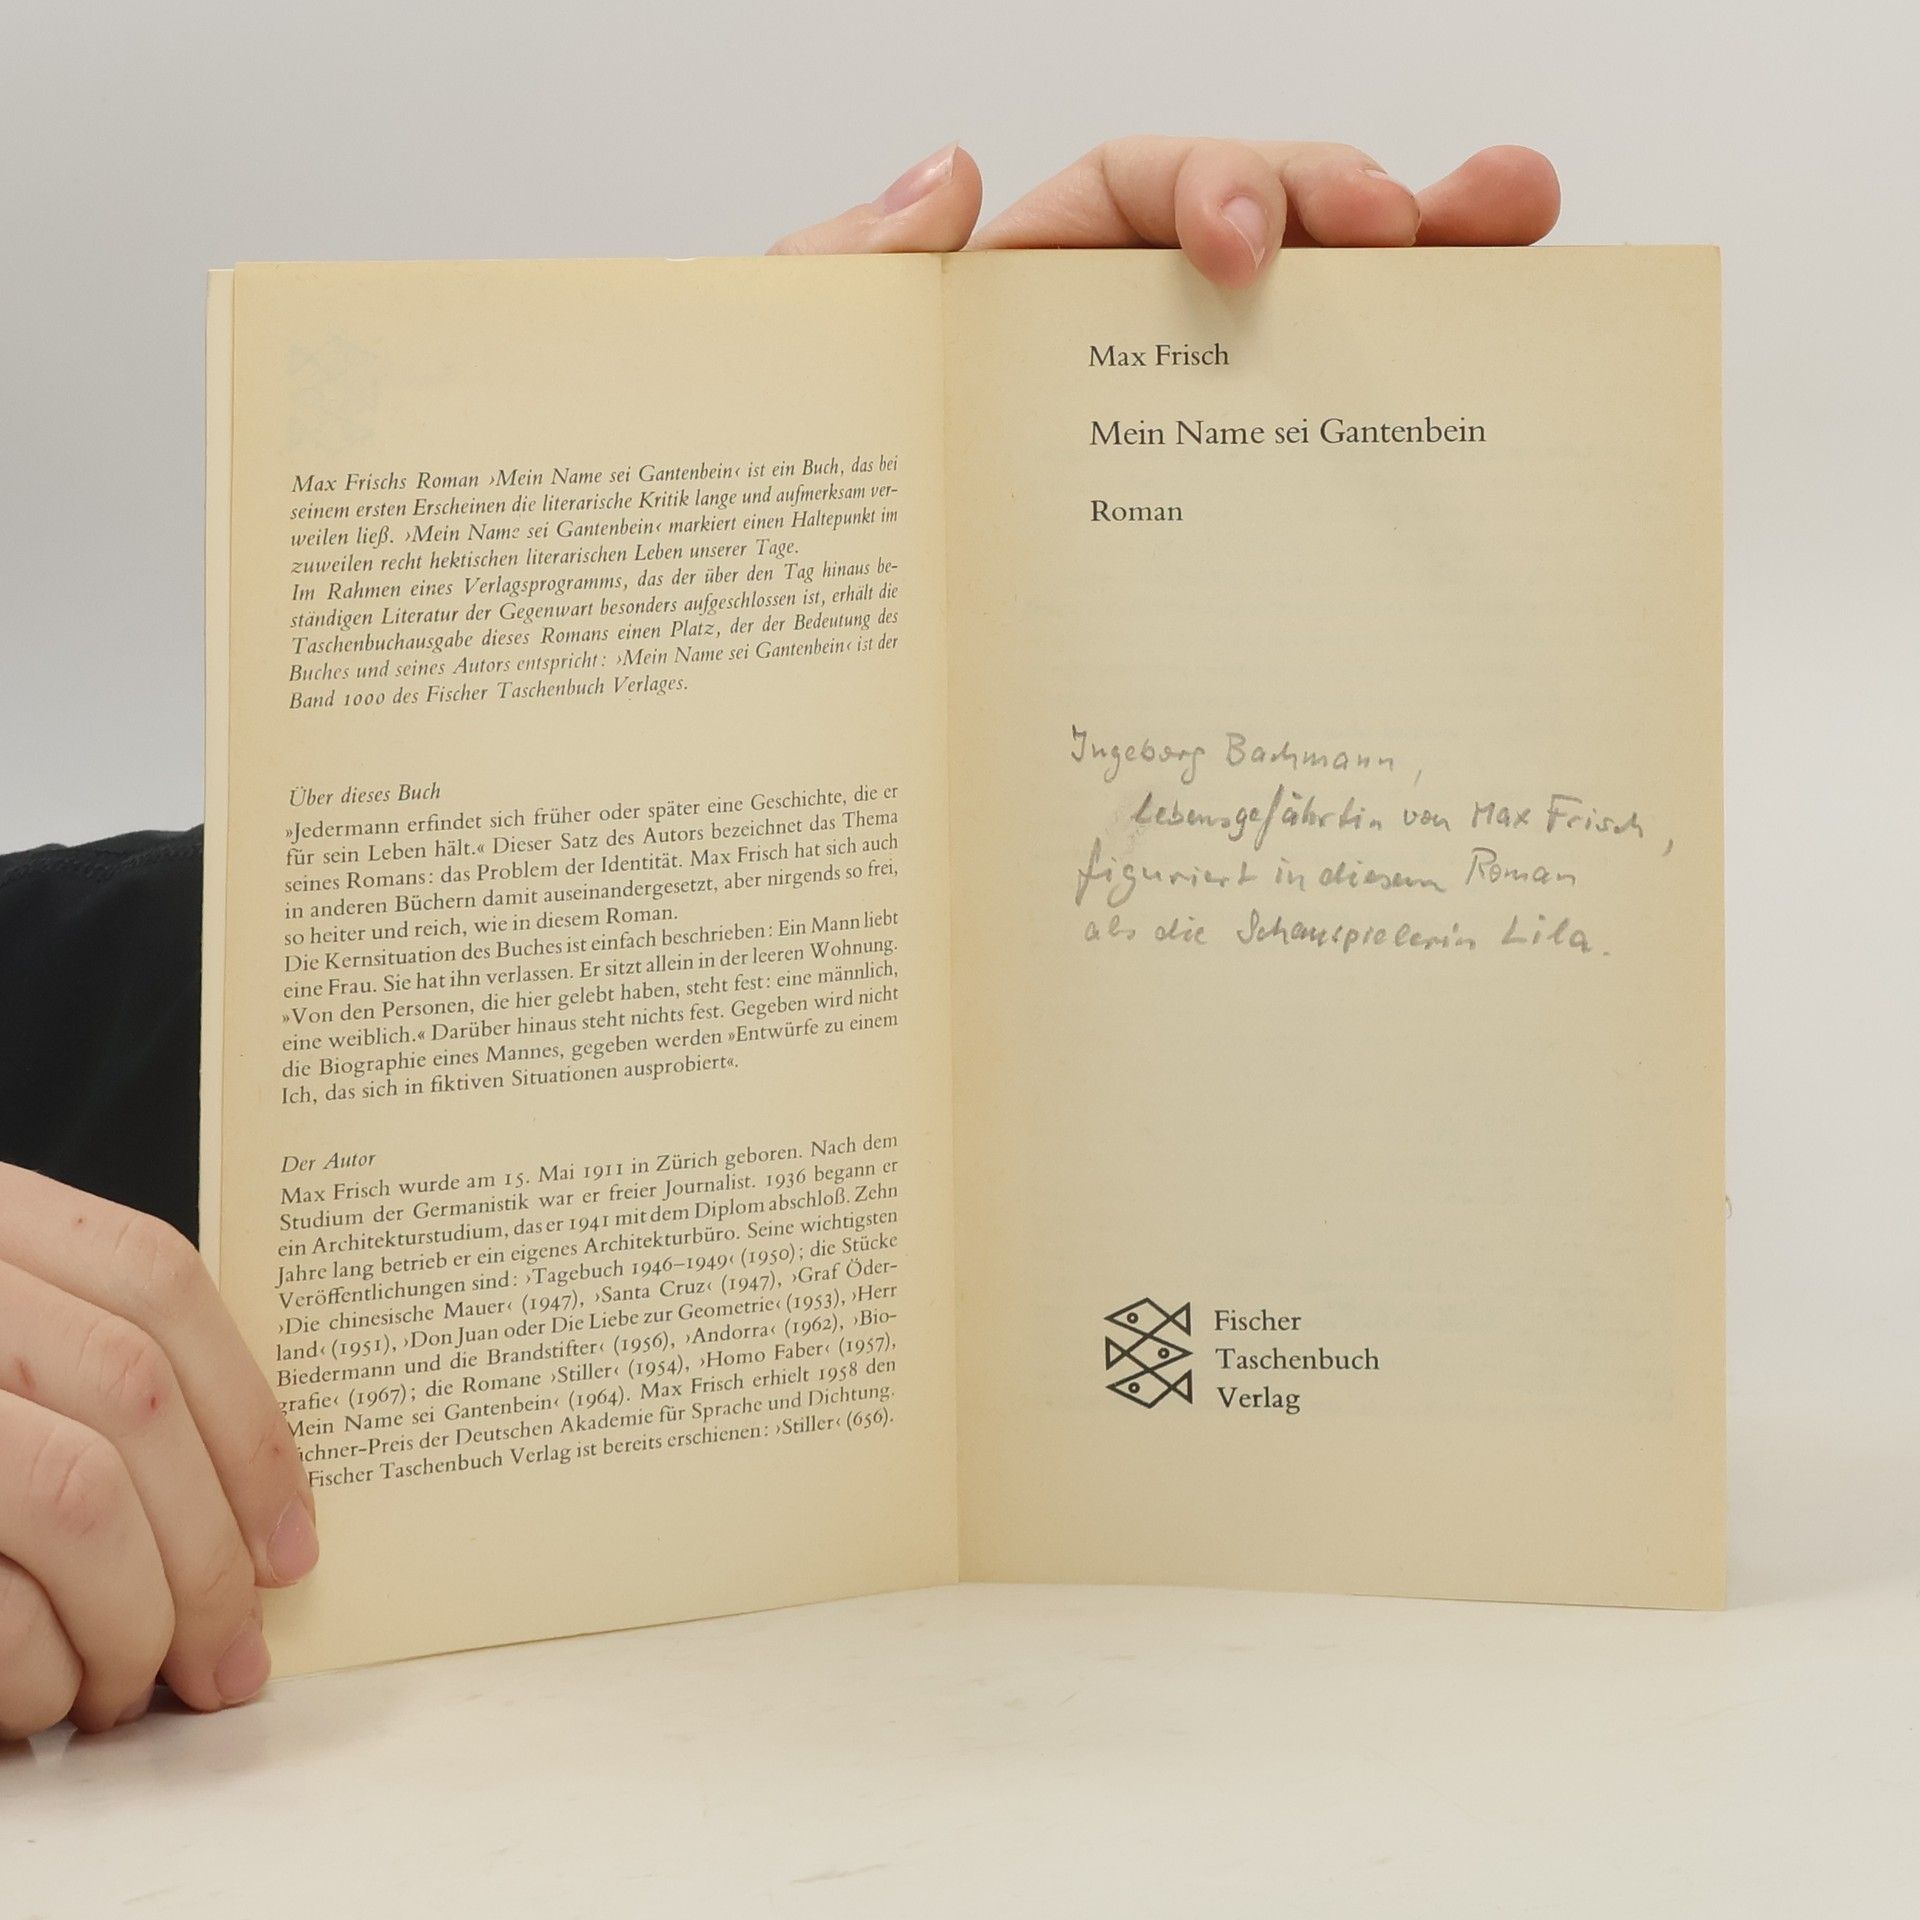 Max Frischs Roman ›Mein Name sei Gantenbein‹ ist ein Buch, das bei
seinem ersten Erscheinen die literarische Kritik lange und aufmerksam ver-
weilen ließ. ›Mein Name sei Gantenbein‹ markiert einen Haltepunkt im
zuweilen recht hektischen literarischen Leben unserer Tage.
Im Rahmen eines Verlagsprogramms, das der über den Tag hinaus be-
ständigen Literatur der Gegenwart besonders aufgeschlossen ist, erhält die
Taschenbuchausgabe dieses Romans einen Platz, der der Bedeutung des
Buches und seines Autors entspricht: ›Mein Name sei Gantenbein‹ ist der
Band 1000 des Fischer Taschenbuch Verlages.
Über dieses Buch
»Jedermann erfindet sich früher oder später eine Geschichte, die er
für sein Leben hält.« Dieser Satz des Autors bezeichnet das Thema
seines Romans: das Problem der Identität. Max Frisch hat sich auch
in anderen Büchern damit auseinandergesetzt, aber nirgends so frei,
so heiter und reich, wie in diesem Roman.
Die Kernsituation des Buches ist einfach beschrieben: Ein Mann liebt
eine Frau. Sie hat ihn verlassen. Er sitzt allein in der leeren Wohnung.
»Von den Personen, die hier gelebt haben, steht fest: eine männlich,
eine weiblich.« Darüber hinaus steht nichts fest. Gegeben wird nicht
die Biographie eines Mannes, gegeben werden »Entwürfe zu einem
Ich, das sich in fiktiven Situationen ausprobiert«.
Der Autor
Max Frisch wurde am 15. Mai 1911 in Zürich geboren. Nach dem
Studium der Germanistik war er freier Journalist. 1936 begann er
ein Architekturstudium, das er 1941 mit dem Diplom abschloß. Zehn
Jahre lang betrieb er ein eigenes Architekturbüro. Seine wichtigsten
Veröffentlichungen sind: ›Tagebuch 1946–1949‹ (1950); die Stücke
›Die chinesische Mauer‹ (1947), ›Santa Cruz‹ (1947), ›Graf Öder-
land‹ (1951), ›Don Juan oder Die Liebe zur Geometrie‹ (1953), ›Herr
Biedermann und die Brandstifter‹ (1956), ›Andorra‹ (1962), ›Bio-
grafie‹ (1967); die Romane ›Stiller‹ (1954), ›Homo Faber‹ (1957),
Mein Name sei Gantenbein‹ (1964). Max Frisch erhielt 1958 den
ichner-Preis der Deutschen Akademie für Sprache und Dichtung.
Fischer Taschenbuch Verlag ist bereits erschienen: ›Stiller‹ (656).
Max Frisch
Mein Name sei Gantenbein
Roman
Ingeborg Bachmann,
Lebensgefährtin von Max Frisch,
figuriert in diesem Roman
als die Schauspielerin Lila.
Fischer
Taschenbuch
Verlag